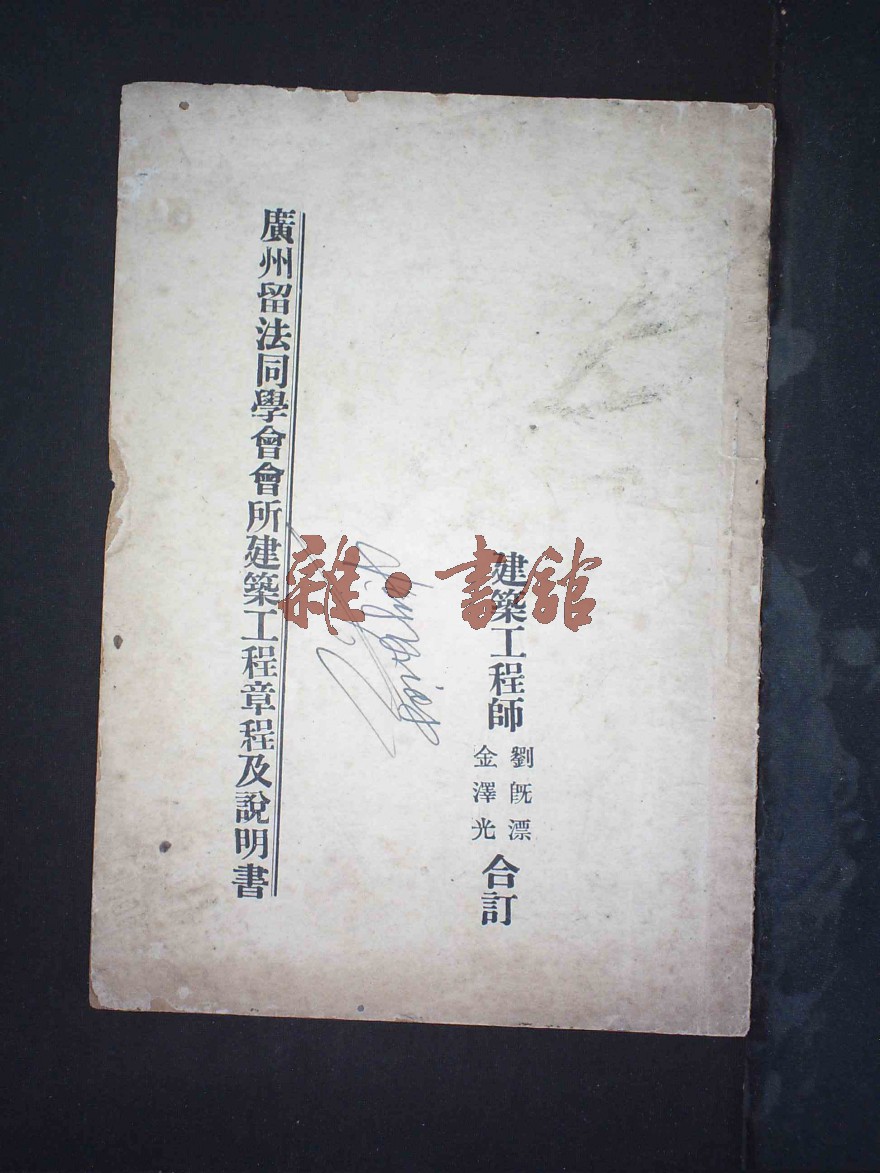 建築工程師 劉旣漂 金澤光 合訂
廣州留法同學會會所建築工程章程及說明書
雜·書館